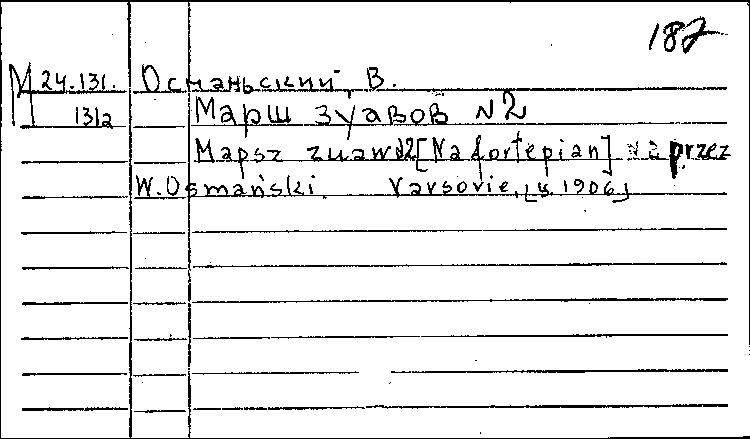 187
М 24.131. Османьский, В.
131а Марш зуавов N2
Mapsz zuawó2[Na fortepian] N2 przez
W.Osmański. Varsovie, [ц. 1906]